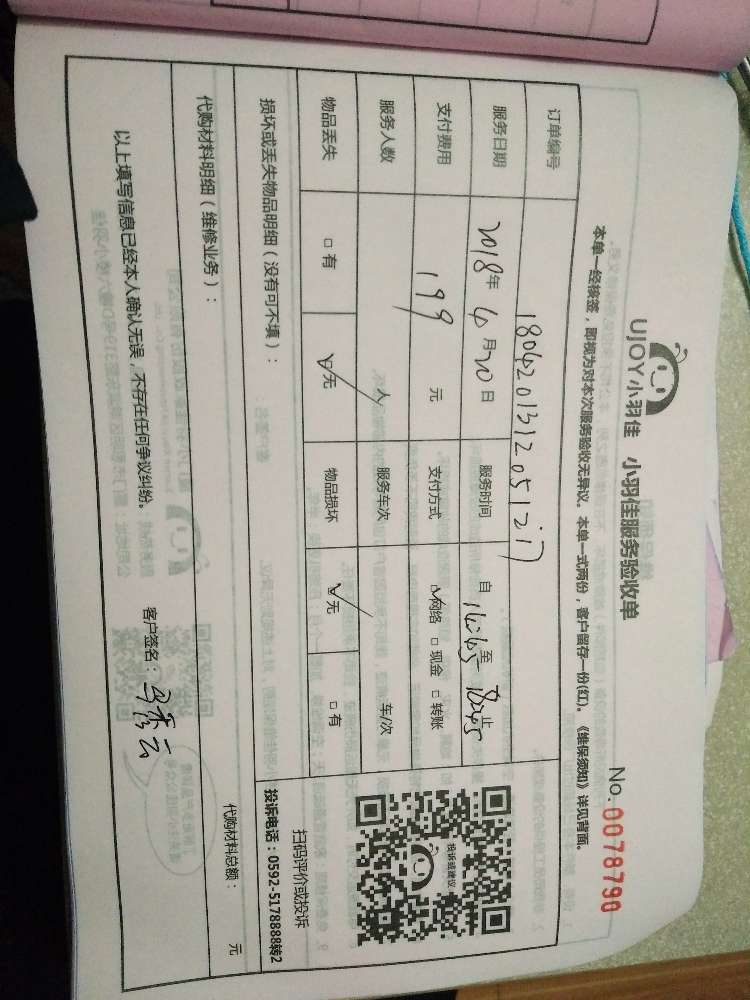 UJOY小羽佳 小羽佳服务验收单
No. 0078790
本单一经核签，即视为对本次服务验收无异议。本单一式两份，客户留存一份(红)。《维保须知》详见背面。
订单编号 180420131205127
服务日期 2018年4月20日 服务时间 自14:45至18:45止
支付费用 199元 支付方式 ☑网络 □现金 □转账
服务人数 人 服务车次 车/次
物品丢失 □有 ☑无 物品损坏 ☑无 □有
投诉或建议
扫码评价或投诉
投诉电话：0592-5178888转2
损坏或丢失物品明细（没有可不填）：
代购材料明细（维修业务）：
代购材料总额： 元
以上填写信息已经本人确认无误，不存在任何争议纠纷。
客户签名：